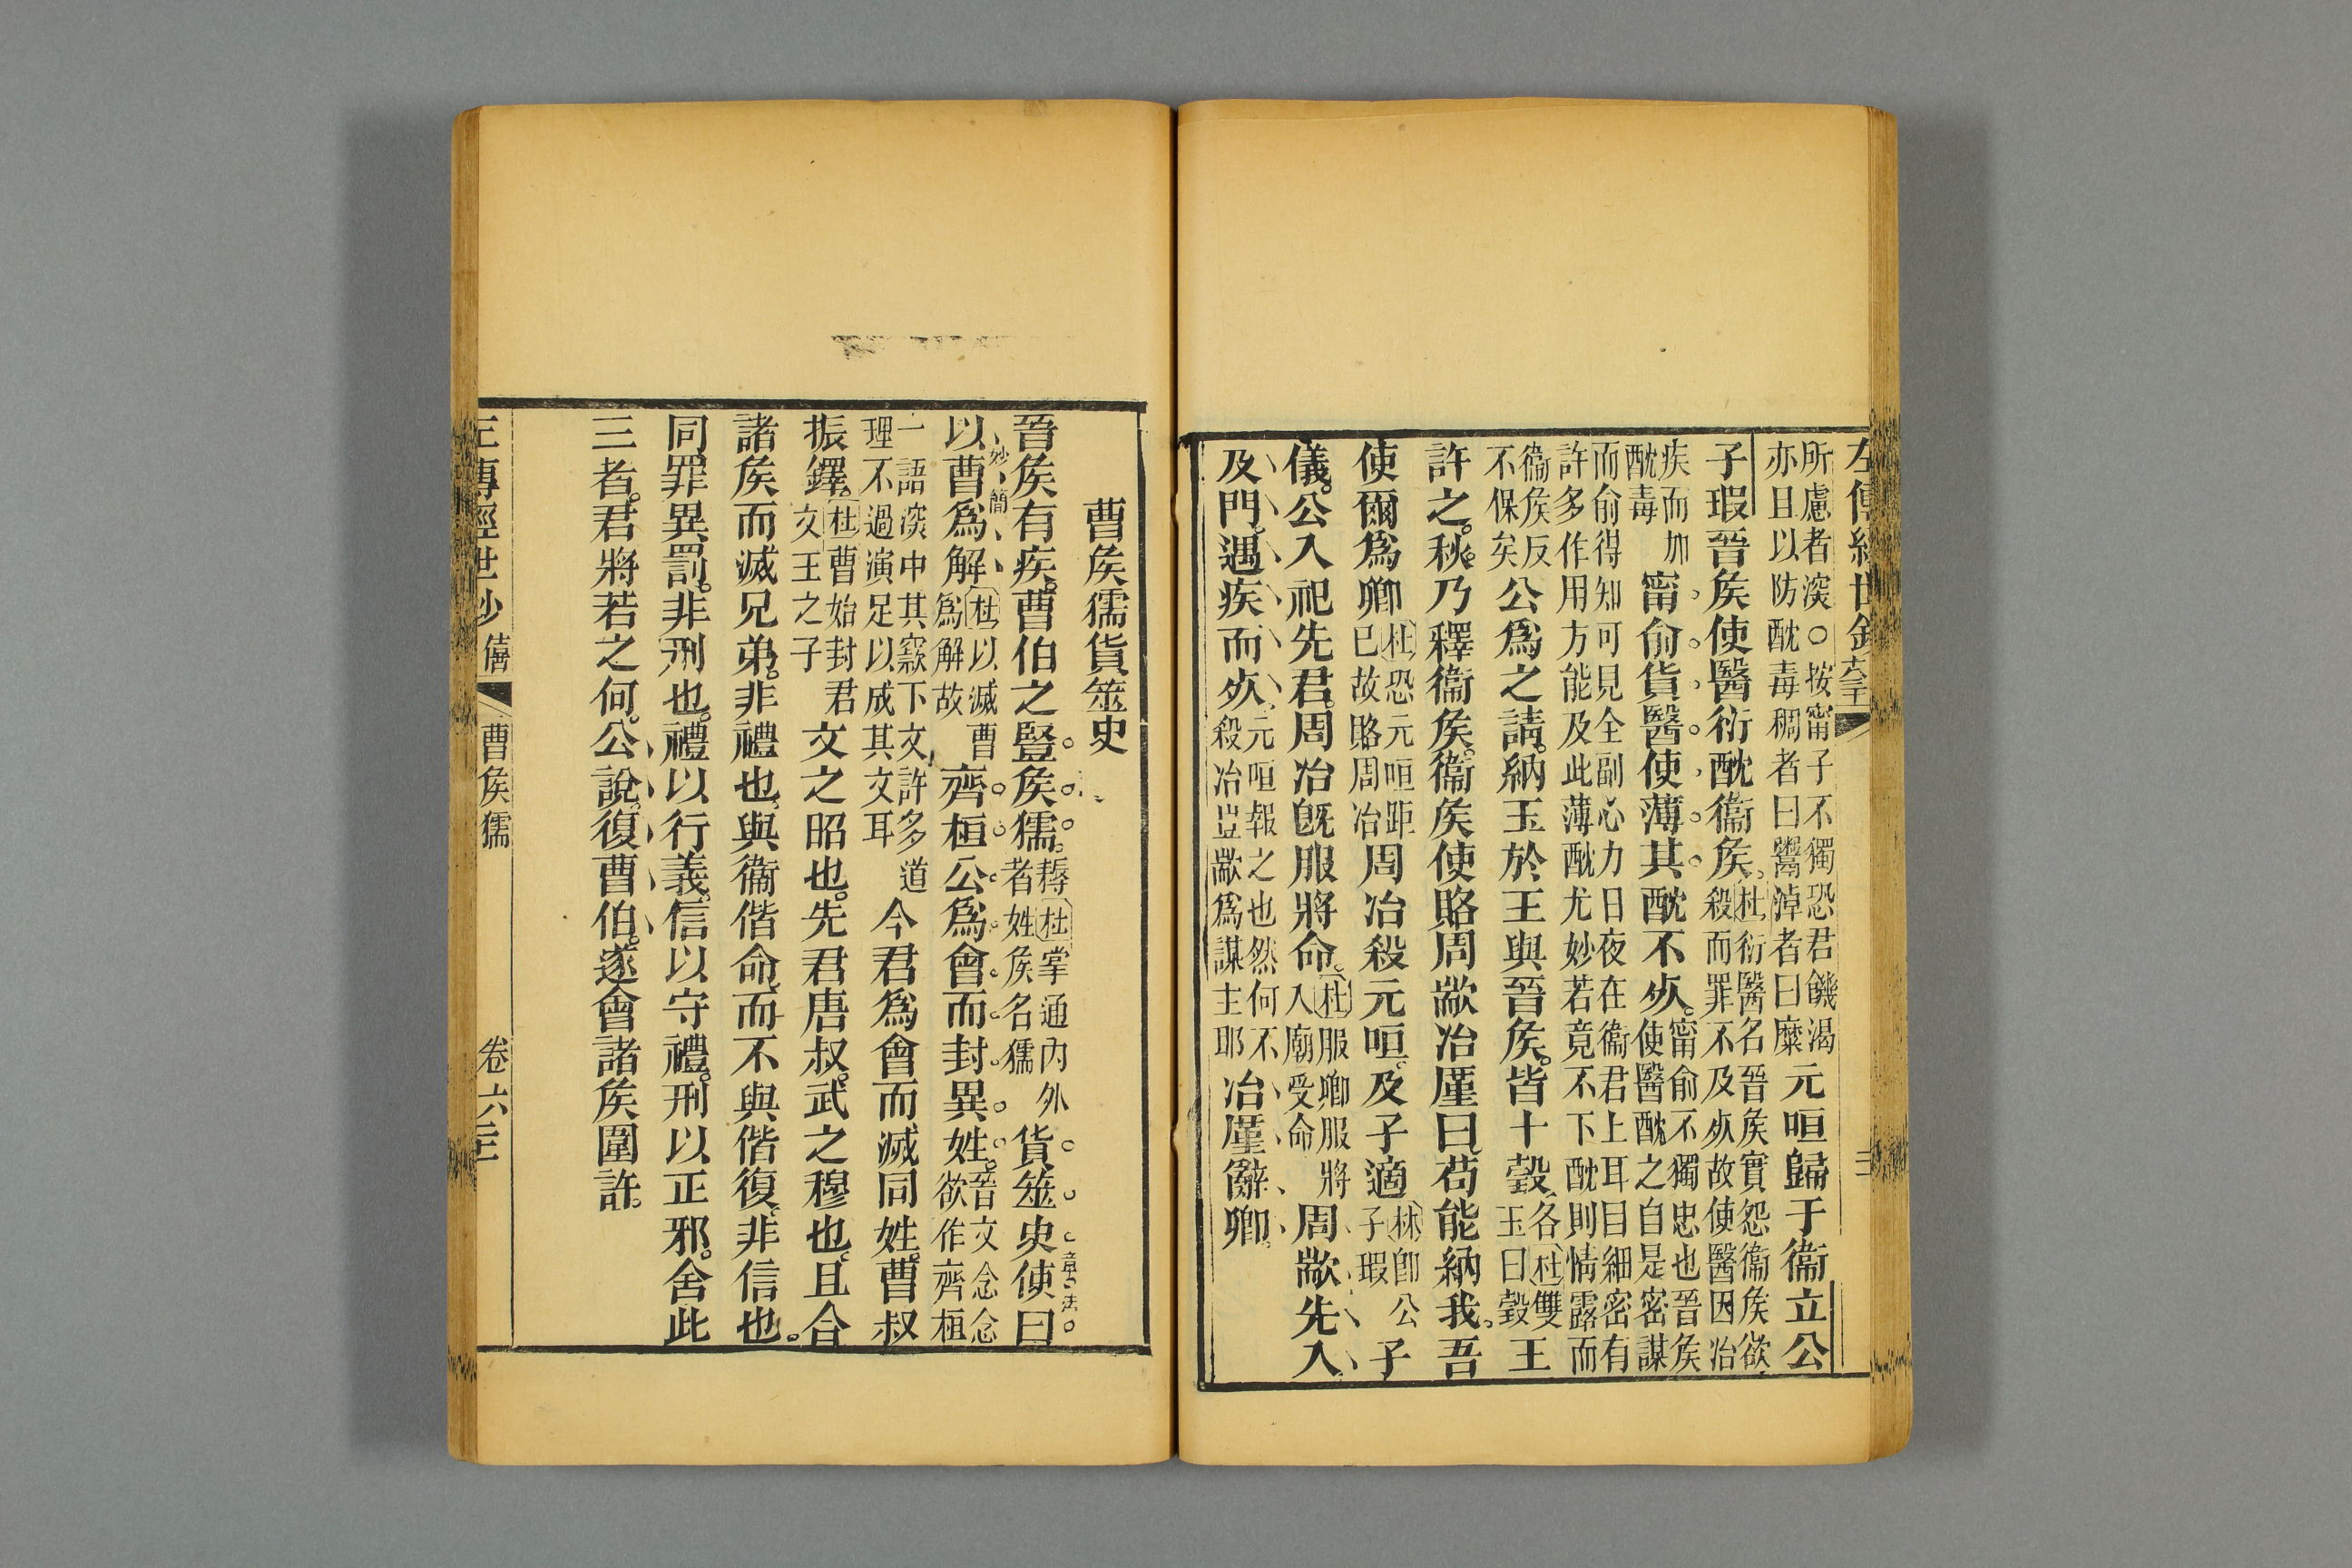 所慮者深〇按甯子不獨恐君饑渴
亦且以防酖毒稠者曰鬻淖者曰糜
元咺歸于衞立公
子瑕晉矦使醫衍酖衞矦
杜衍醫名晉矦實怨衞矦欲
殺而罪不及𣦸故使醫因治
疾而加
酖毒
甯俞貨醫使薄其酖不𣦸
甯俞不獨忠也晉矦
使醫酖之自是密謀
而俞得知可見全副心力日夜在衞君上耳目細密有
許多作用方能及此薄酖尤妙若竟不下酖則情露而
衞矦反
不保矣
公爲之請納玉於王與晉矦皆十瑴
各杜雙
玉曰瑴
王
許之秋乃釋衞矦衞矦使賂周歂冶廑曰苟能納我吾
使爾爲卿
杜恐元咺距
已故賂周冶
周冶殺元咺及子適
林卽公
子瑕
子
儀公入祀先君周冶旣服將命
杜服卿服將
入廟受命
周歂先入
及門遇疾而𣦸
元咺報之也然何不
殺冶豈歂爲謀主耶
冶廑辭卿
曹矦獳貨筮史
晉矦有疾曹伯之豎矦獳
杜掌通內外
者姓矦名獳
貨筮史使曰
章法
以曹爲解
妙簡
杜以滅曹
爲解故
齊桓公爲會而封異姓
晉文念念
欲作齊桓
一語深中其窾下文許多道
理不過演足以成其文耳
今君爲會而滅同姓曹叔
振鐸
杜曹始封君
文王之子
文之昭也先君唐叔武之穆也且合
諸矦而滅兄弟非禮也與衞偕命而不與偕復非信也
同罪異罰非刑也禮以行義信以守禮刑以正邪舍此
三者君將若之何公說復曹伯遂會諸矦圍許
傳經世鈔 僖 曹矦獳 卷六